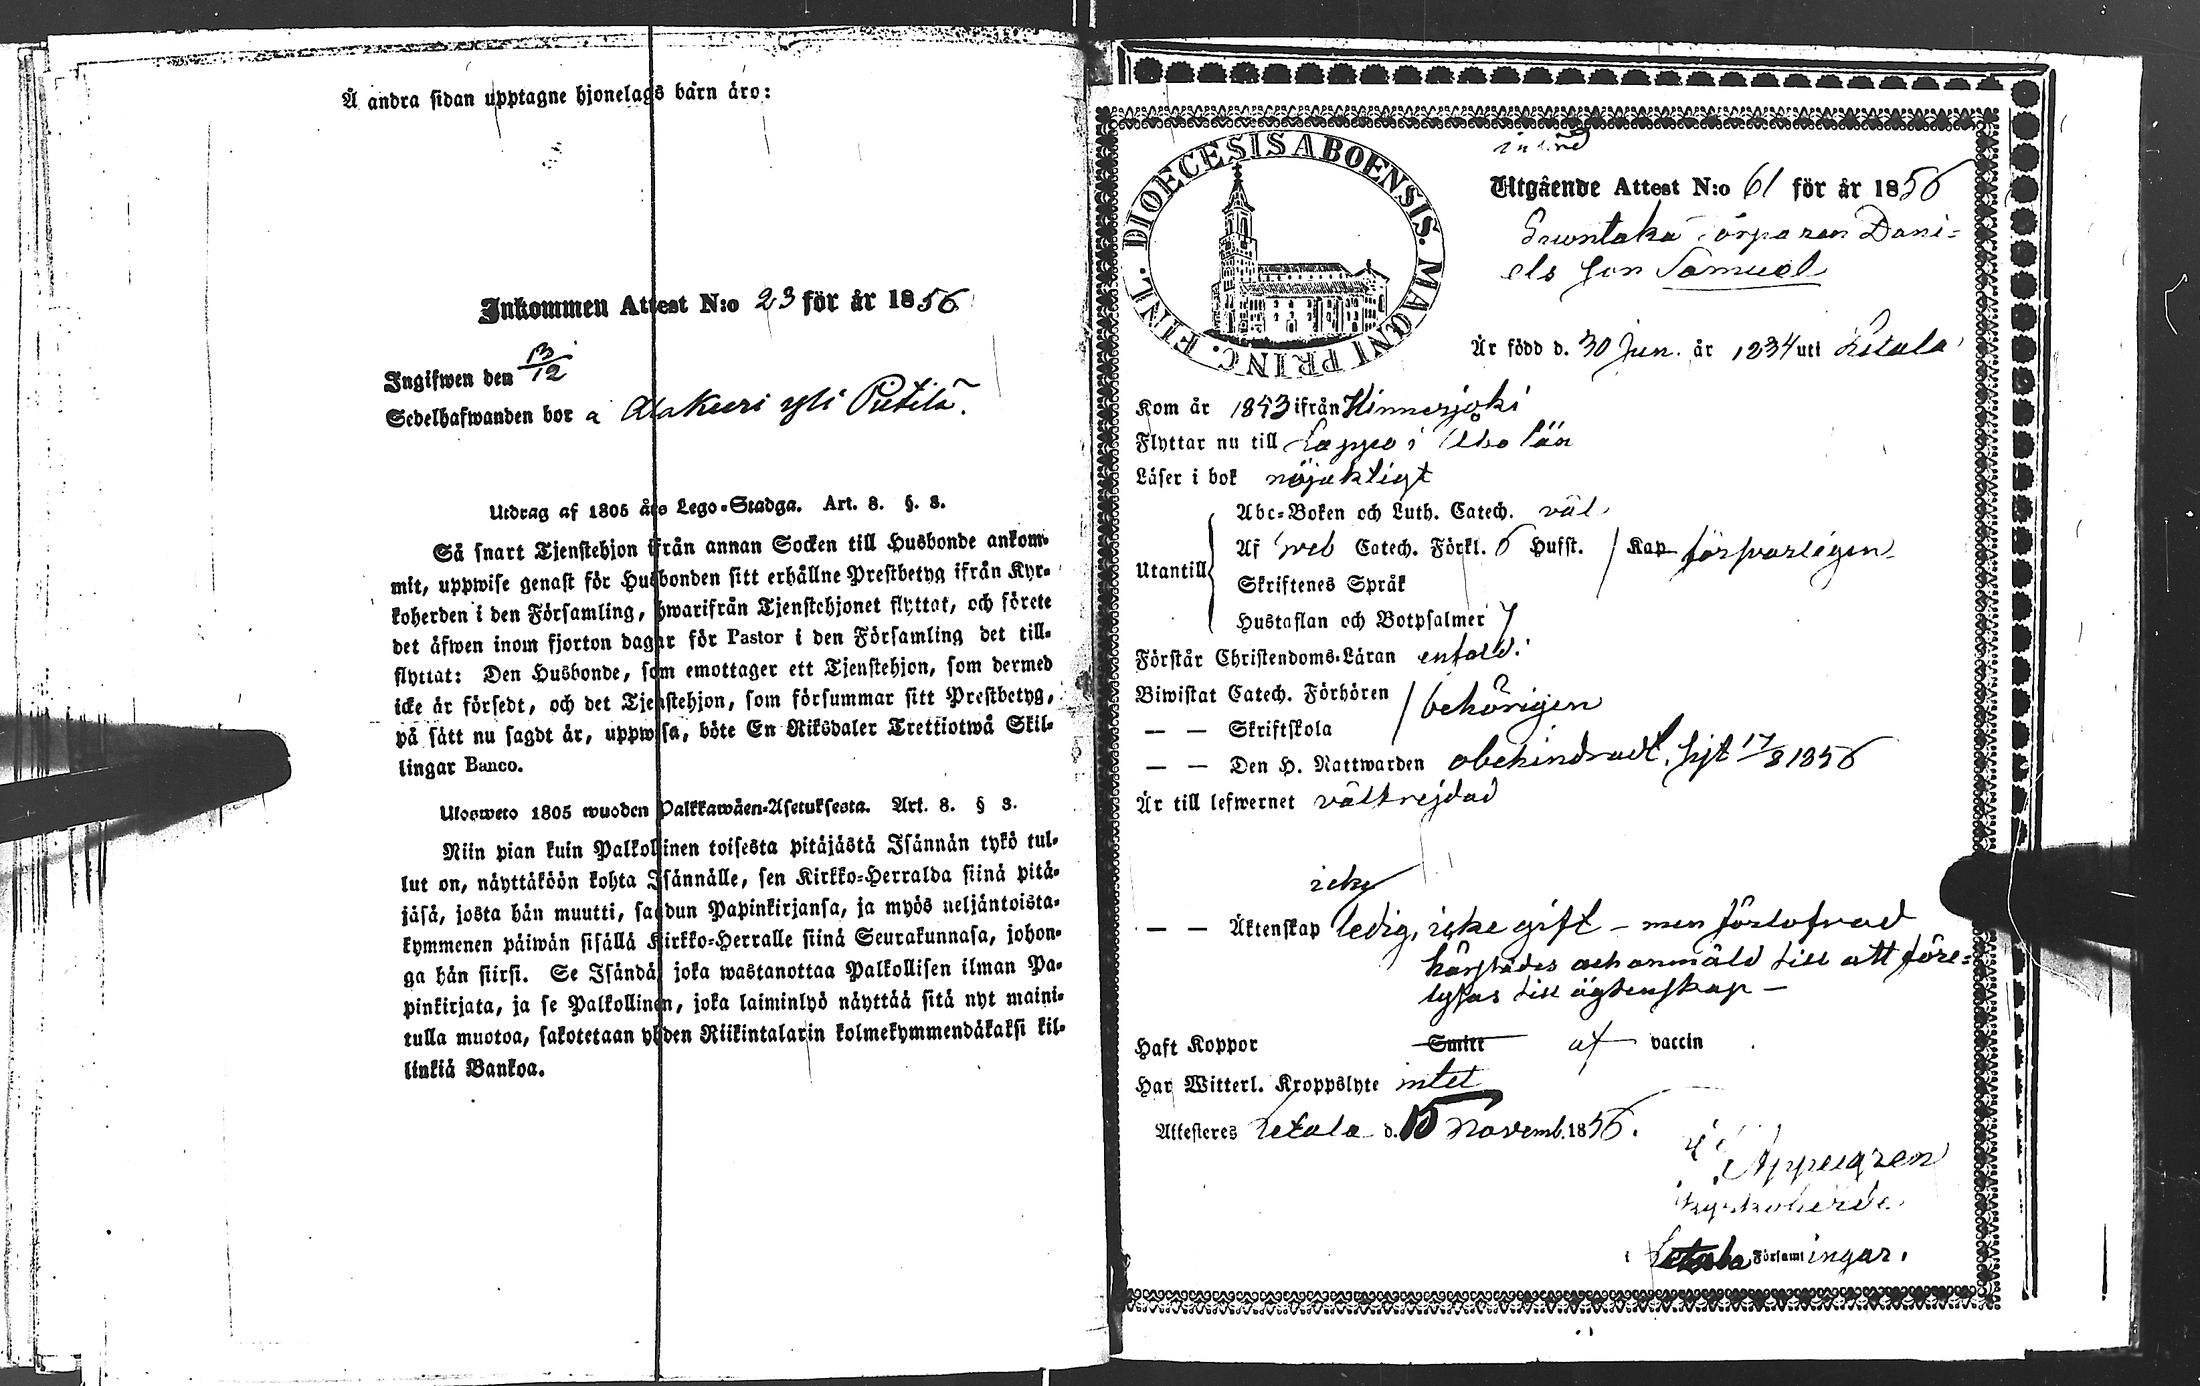 Å andra sidan upptagne hjonelags barn äro:
Inkommen Attest N:o 23 för år 1856
Ingifwen den 13/12
Sedelhafwanden bor a Alakuri yli Pietilä.
Utdrag af 1805 års Lego-Stadga. Art. 8. §. 3.
Så snart Tjenstehjon ifrån annan Socken till Husbonde ankom-
mit, uppwise genast för Husbonden sitt erhållne Prestbetyg ifrån Kyr-
koherden i den Församling, hwarifrån Tjenstehjonet flyttat, och förete
det äfwen inom fjorton dagar för Pastor i den Församling det till-
flyttat: Den Husbonde, som emottager ett Tjenstehjon, som dermed
icke är försedt, och det Tjenstehjon, som försummar sitt Prestbetyg,
på sätt nu sagdt är, uppwisa, böte En Riksdaler Trettiotwå Skil-
lingar Banco.
Ulosweto 1805 wuoden Palkkawäen-Asetuksesta. Art. 8. § 3.
Niin pian kuin Palkollinen toisesta pitäjästä Isännän tykö tul-
lut on, näyttäköön kohta Isännälle, sen Kirkko-Herralda siinä pitä-
jäsä, josta hän muutti, saadun Papinkirjansa, ja myös neljäntoista-
kymmenen päiwän sisällä Kirkko-Herralle siinä Seurakunnasa, johon-
ga hän siirsi. Se Isändä joka wastanottaa Palkollisen ilman Pa-
pinkirjata, ja se Palkollinen, joka laiminlyö näyttää sitä nyt maini-
tulla muotoa, sakotetaan yhden Riikintalarin kolmekymmendäkaksi kil-
linkiä Bankoa.
FINL. DIOECESIS ABOENSIS. MAGNI PRINC.
Utgående Attest N:o 61 för år 1856
Suontaka Torparen Dani-
els son Samuel
Är född d. 30 Jun. år 1834 uti Letala
Kom år 1853 ifrån Hinnerjoki
Flyttar nu till Lappo i Åbo län
Läser i bok nöjaktigt
Abc-Boken och Luth. Catech. väl
Af Sveb Catech. Förkl. 6 Hufst. / Kap försvarligen
Utantill
Skriftenes Språk
Hustaflan och Botpsalmer 7
Förstår Christendoms-Läran enfald.
Biwistat Catech. Förhören / behörigen
— — Skriftskola
— — Den H. Nattwarden obehindradt. sist 17/8 1856
Är till lefwernet välfrejdad
icke
— — Äktenskap ledig, icke gift – men förlofvad
härstädes och anmäld till att före-
lysas till ägtenskap –
Haft Koppor Smitt af vaccin
Har Witterl. Kroppslyte intet
Attesteres Letala d. 15 Novemb. 1856.
Appelgren
Kyrkoherde
i Letala Församlingar.